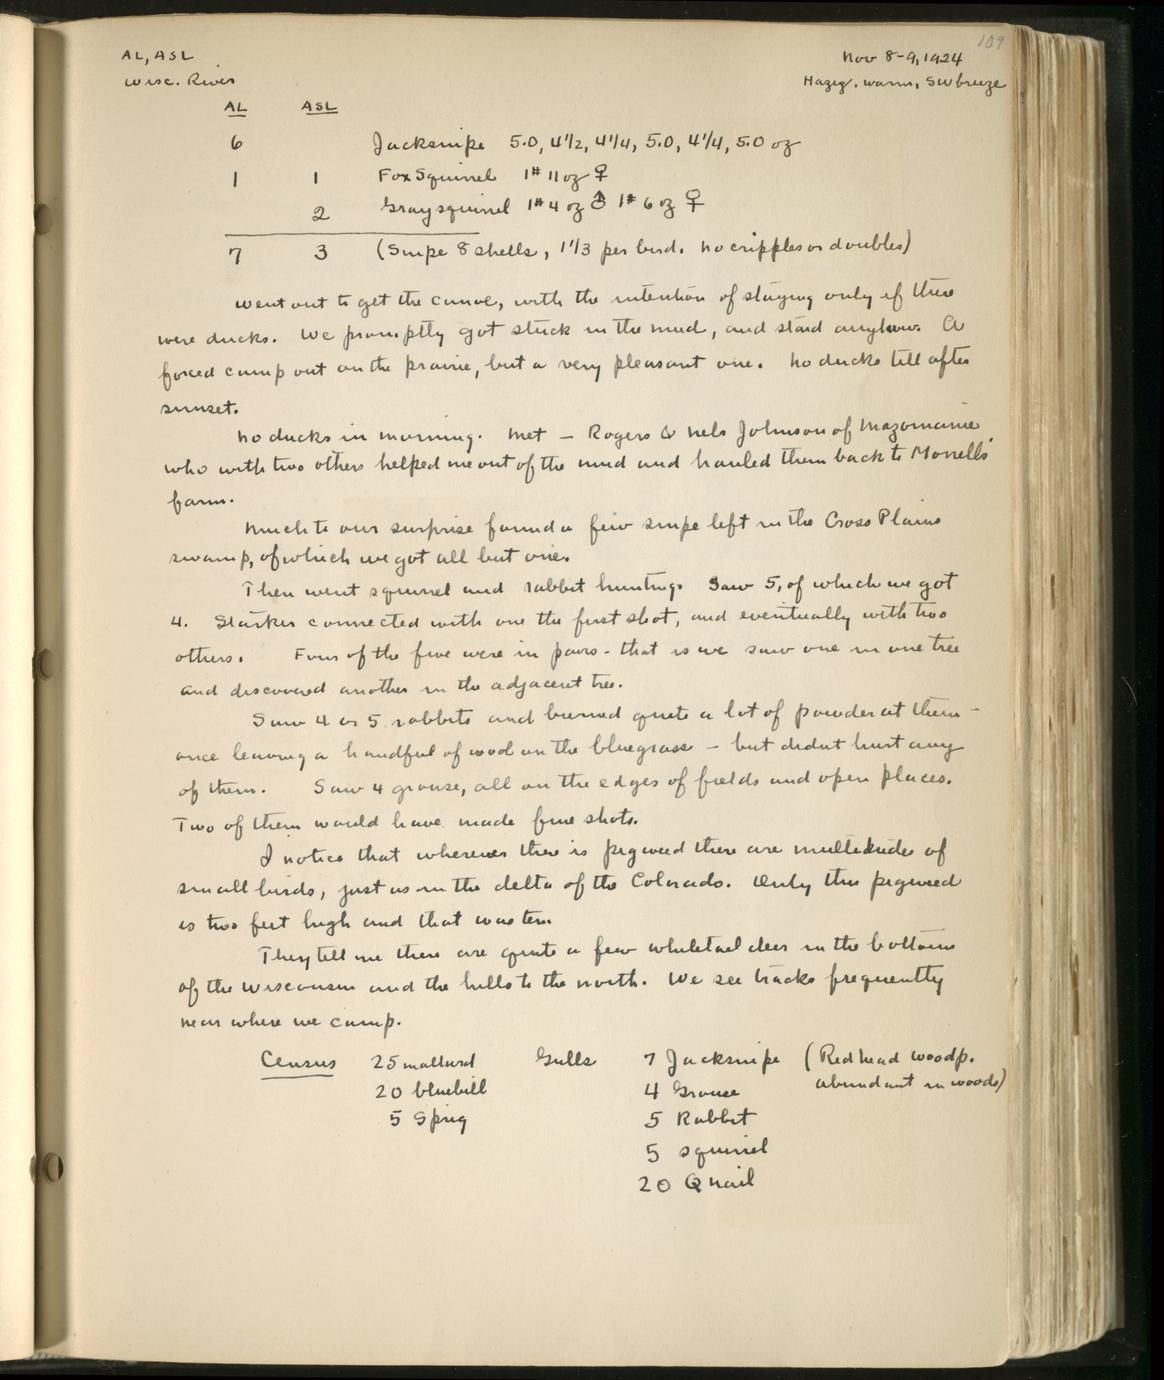 109
AL, ASL Nov 8-9, 1924
Wisc. River Hazy, warm, SW breeze
AL ASL
6 Jacksnipe 5.0, 4 1/2, 4 1/4, 5.0, 4 1/4, 5.0 oz
1 1 Fox Squirrel 1# 11 oz ♀
2 Gray squirrel 1# 4 oz ♂ 1# 6 oz ♀
7 3 (Snipe 8 shells, 1 1/3 per bird. No cripples or doubles)
Went out to get the canoe, with the intention of staying only if there
were ducks. We promptly got stuck in the mud, and staid anyhow. A
forced camp out on the prairie, but a very pleasant one. No ducks till after
sunset.
No ducks in morning. Met — Rogers & Nels Johnson of Mazomanie,
who with two others helped me out of the mud and hauled them back to Morrells
farm.
Much to our surprise found a few snipe left in the Cross Plains
swamp, of which we got all but one.
Then went squirrel and rabbit hunting. Saw 5, of which we got
4. Starker connected with one the first shot, and eventually with two
others. Four of the five were in pairs - that is we saw one in one tree
and discovered another in the adjacent tree.
Saw 4 or 5 rabbits and burned quite a lot of powder at them -
once leaving a handful of wool on the bluegrass - but didnt hurt any
of them. Saw 4 grouse, all on the edges of fields and open places.
Two of them would have made fine shots.
I notice that wherever there is pigweed there are multitudes of
small birds, just as in the delta of the Colorado. Only this pigweed
is two feet high and that was ten
They tell me there are quite a few whitetail deer in the bottoms
of the Wisconsin and the hills to the north. We see tracks frequently
near where we camp.
Census 25 mallard Gulls 7 Jacksnipe (Redhead woodp.
20 bluebill 4 Grouse abundant in woods)
5 Sprig 5 Rabbit
5 squirrel
20 Quail